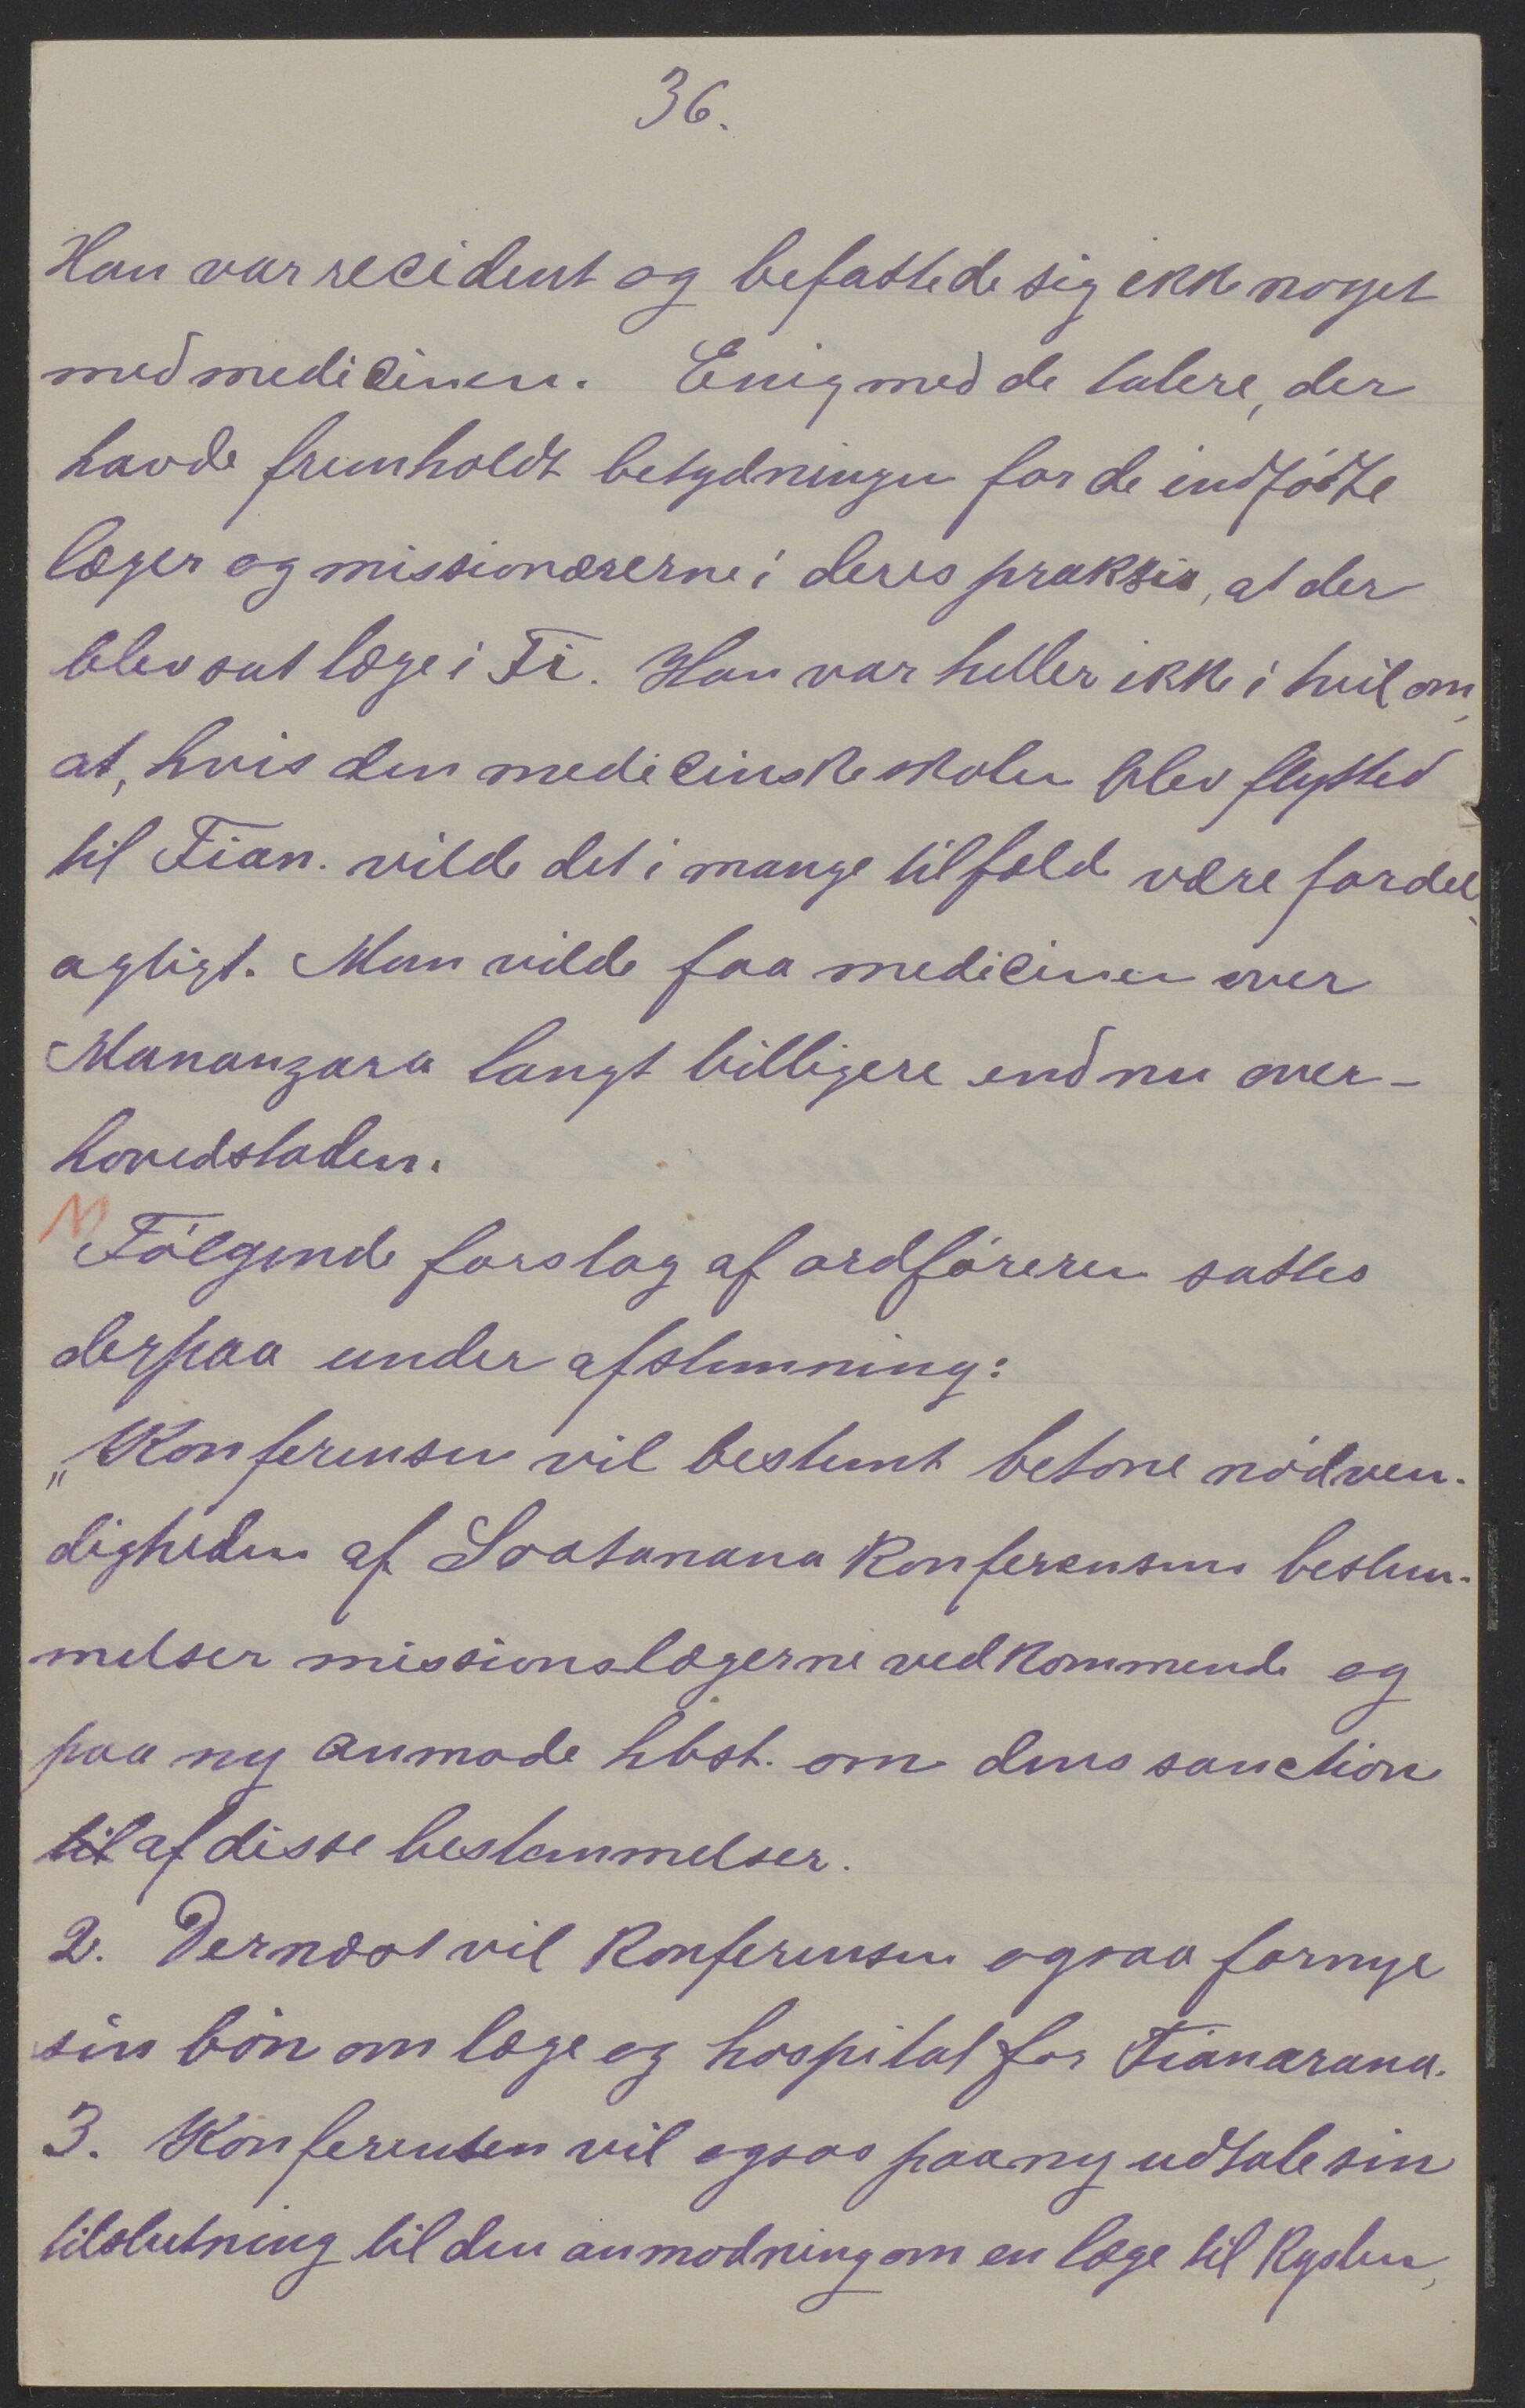 36.
Han var recident og befattede sig ikke noget
med medicinen. Enig med de talere, der
havde fremholdt betydningen for de indfödte
læger og missionærerne i deres praksis, at der
blev sat læge i Fi. Han var heller ikke i tvil om,
at, hvis den medicinske skolen blev flytted
til Fian. vilde det i mange tilfæld være fordel-
agtigt. Man vilde faa medicinen over
Mananzara langt billigere end nu over-
hovedstaden.
Fölgende forslag af ordföreren sattes
derpaa under afstemning:
„Konferensen vil bestemt betone nödven-
digheden af Soatanana Konferensens bestem-
melser missionslægerne vedkommende og
paa ny anmode hbst. om dens sanction
til af disse bestemmelser.
2. Dernæst vil Konferensen ogsaa fornye
sin bön om læge og hospital for Fianarana.
3. Konferensen vil ogsaa paany udtale sin
tilslutning til den anmodning om en læge til Kysten,